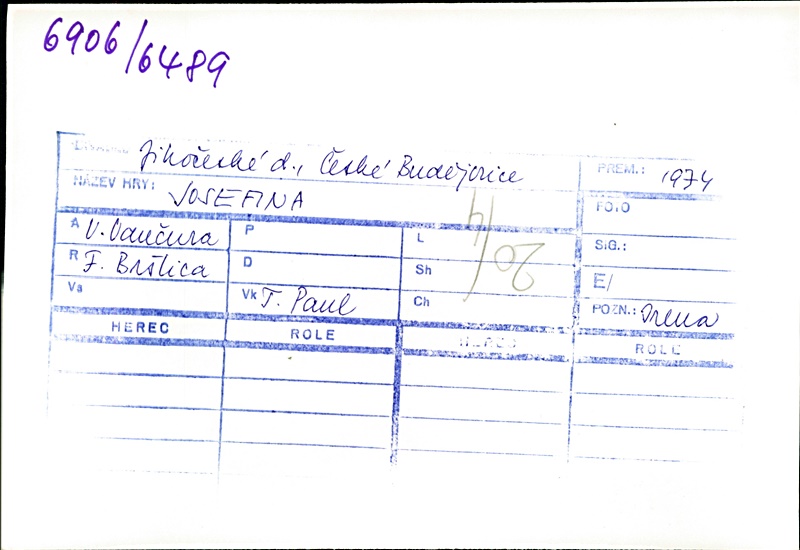 6906/6489
Jihočeské d., České Budějovice PREM.: 1974
NÁZEV HRY: JOSEFINA FOTO
A V. Vančura P L SIG.:
R F. Brštica D Sh E/
Va Vk T. Paul Ch POZN.:
20/4
HEREC ROLE HEREC ROLE